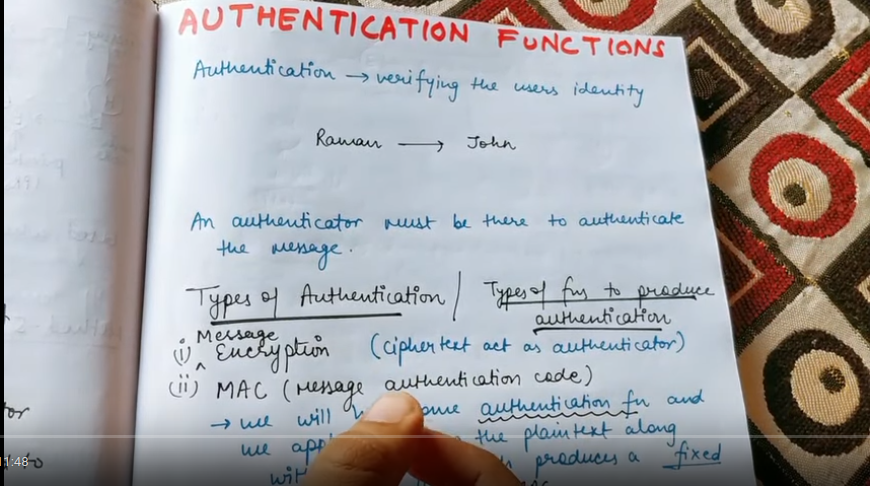 AUTHENTICATION FUNCTIONS
Authentication → verifying the users identity
Raman → John
An authenticator must be there to authenticate
the message.
Types of Authentication / Types of fns to produce
authentication
(i) Message Encryption (ciphertext act as authenticator)
(ii) MAC (message authentication code)
→ we will some authentication fn and
we the plaintext along
produces a fixed
11:48